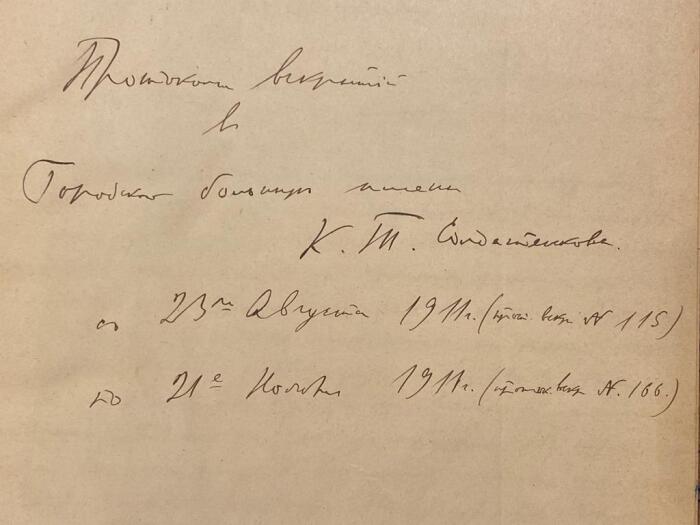 Протоколы вскрытий
в
Городской больнице имени
К. Т. Солдатенкова.
съ 23го Августа 1911г. (прот. вскр. № 115)
по 21е Ноября 1911г. (проток. вскр. №. 166.)